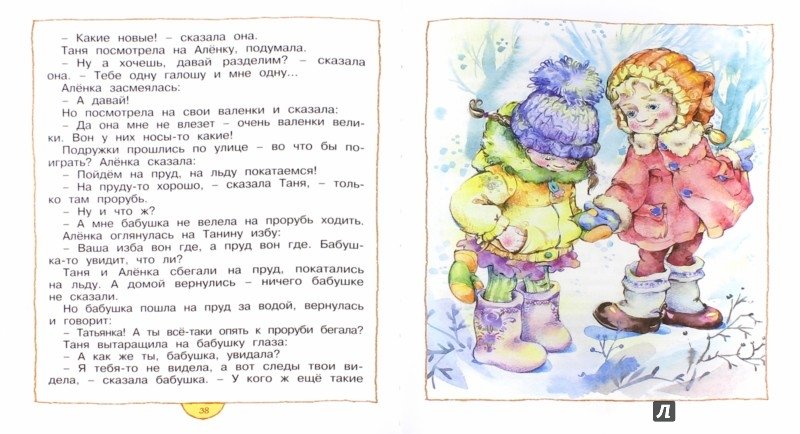 – Какие новые! – сказала она.
Таня посмотрела на Алёнку, подумала.
– Ну а хочешь, давай разделим? – сказала
она. – Тебе одну галошу и мне одну...
Алёнка засмеялась:
– А давай!
Но посмотрела на свои валенки и сказала:
– Да она мне не влезет – очень валенки вели-
ки. Вон у них носы-то какие!
Подружки прошлись по улице – во что бы по-
играть? Алёнка сказала:
– Пойдём на пруд, на льду покатаемся!
– На пруду-то хорошо, – сказала Таня, – толь-
ко там прорубь.
– Ну и что ж?
– А мне бабушка не велела на прорубь ходить.
Алёнка оглянулась на Танину избу:
– Ваша изба вон где, а пруд вон где. Бабуш-
ка-то увидит, что ли?
Таня и Алёнка сбегали на пруд, покатались
на льду. А домой вернулись – ничего бабушке
не сказали.
Но бабушка пошла на пруд за водой, вернулась
и говорит:
– Татьянка! А ты всё-таки опять к проруби бегала?
Таня вытаращила на бабушку глаза:
– А как же ты, бабушка, увидала?
– Я тебя-то не видела, а вот следы твои ви-
дела, – сказала бабушка. – У кого ж ещё такие
38
Л